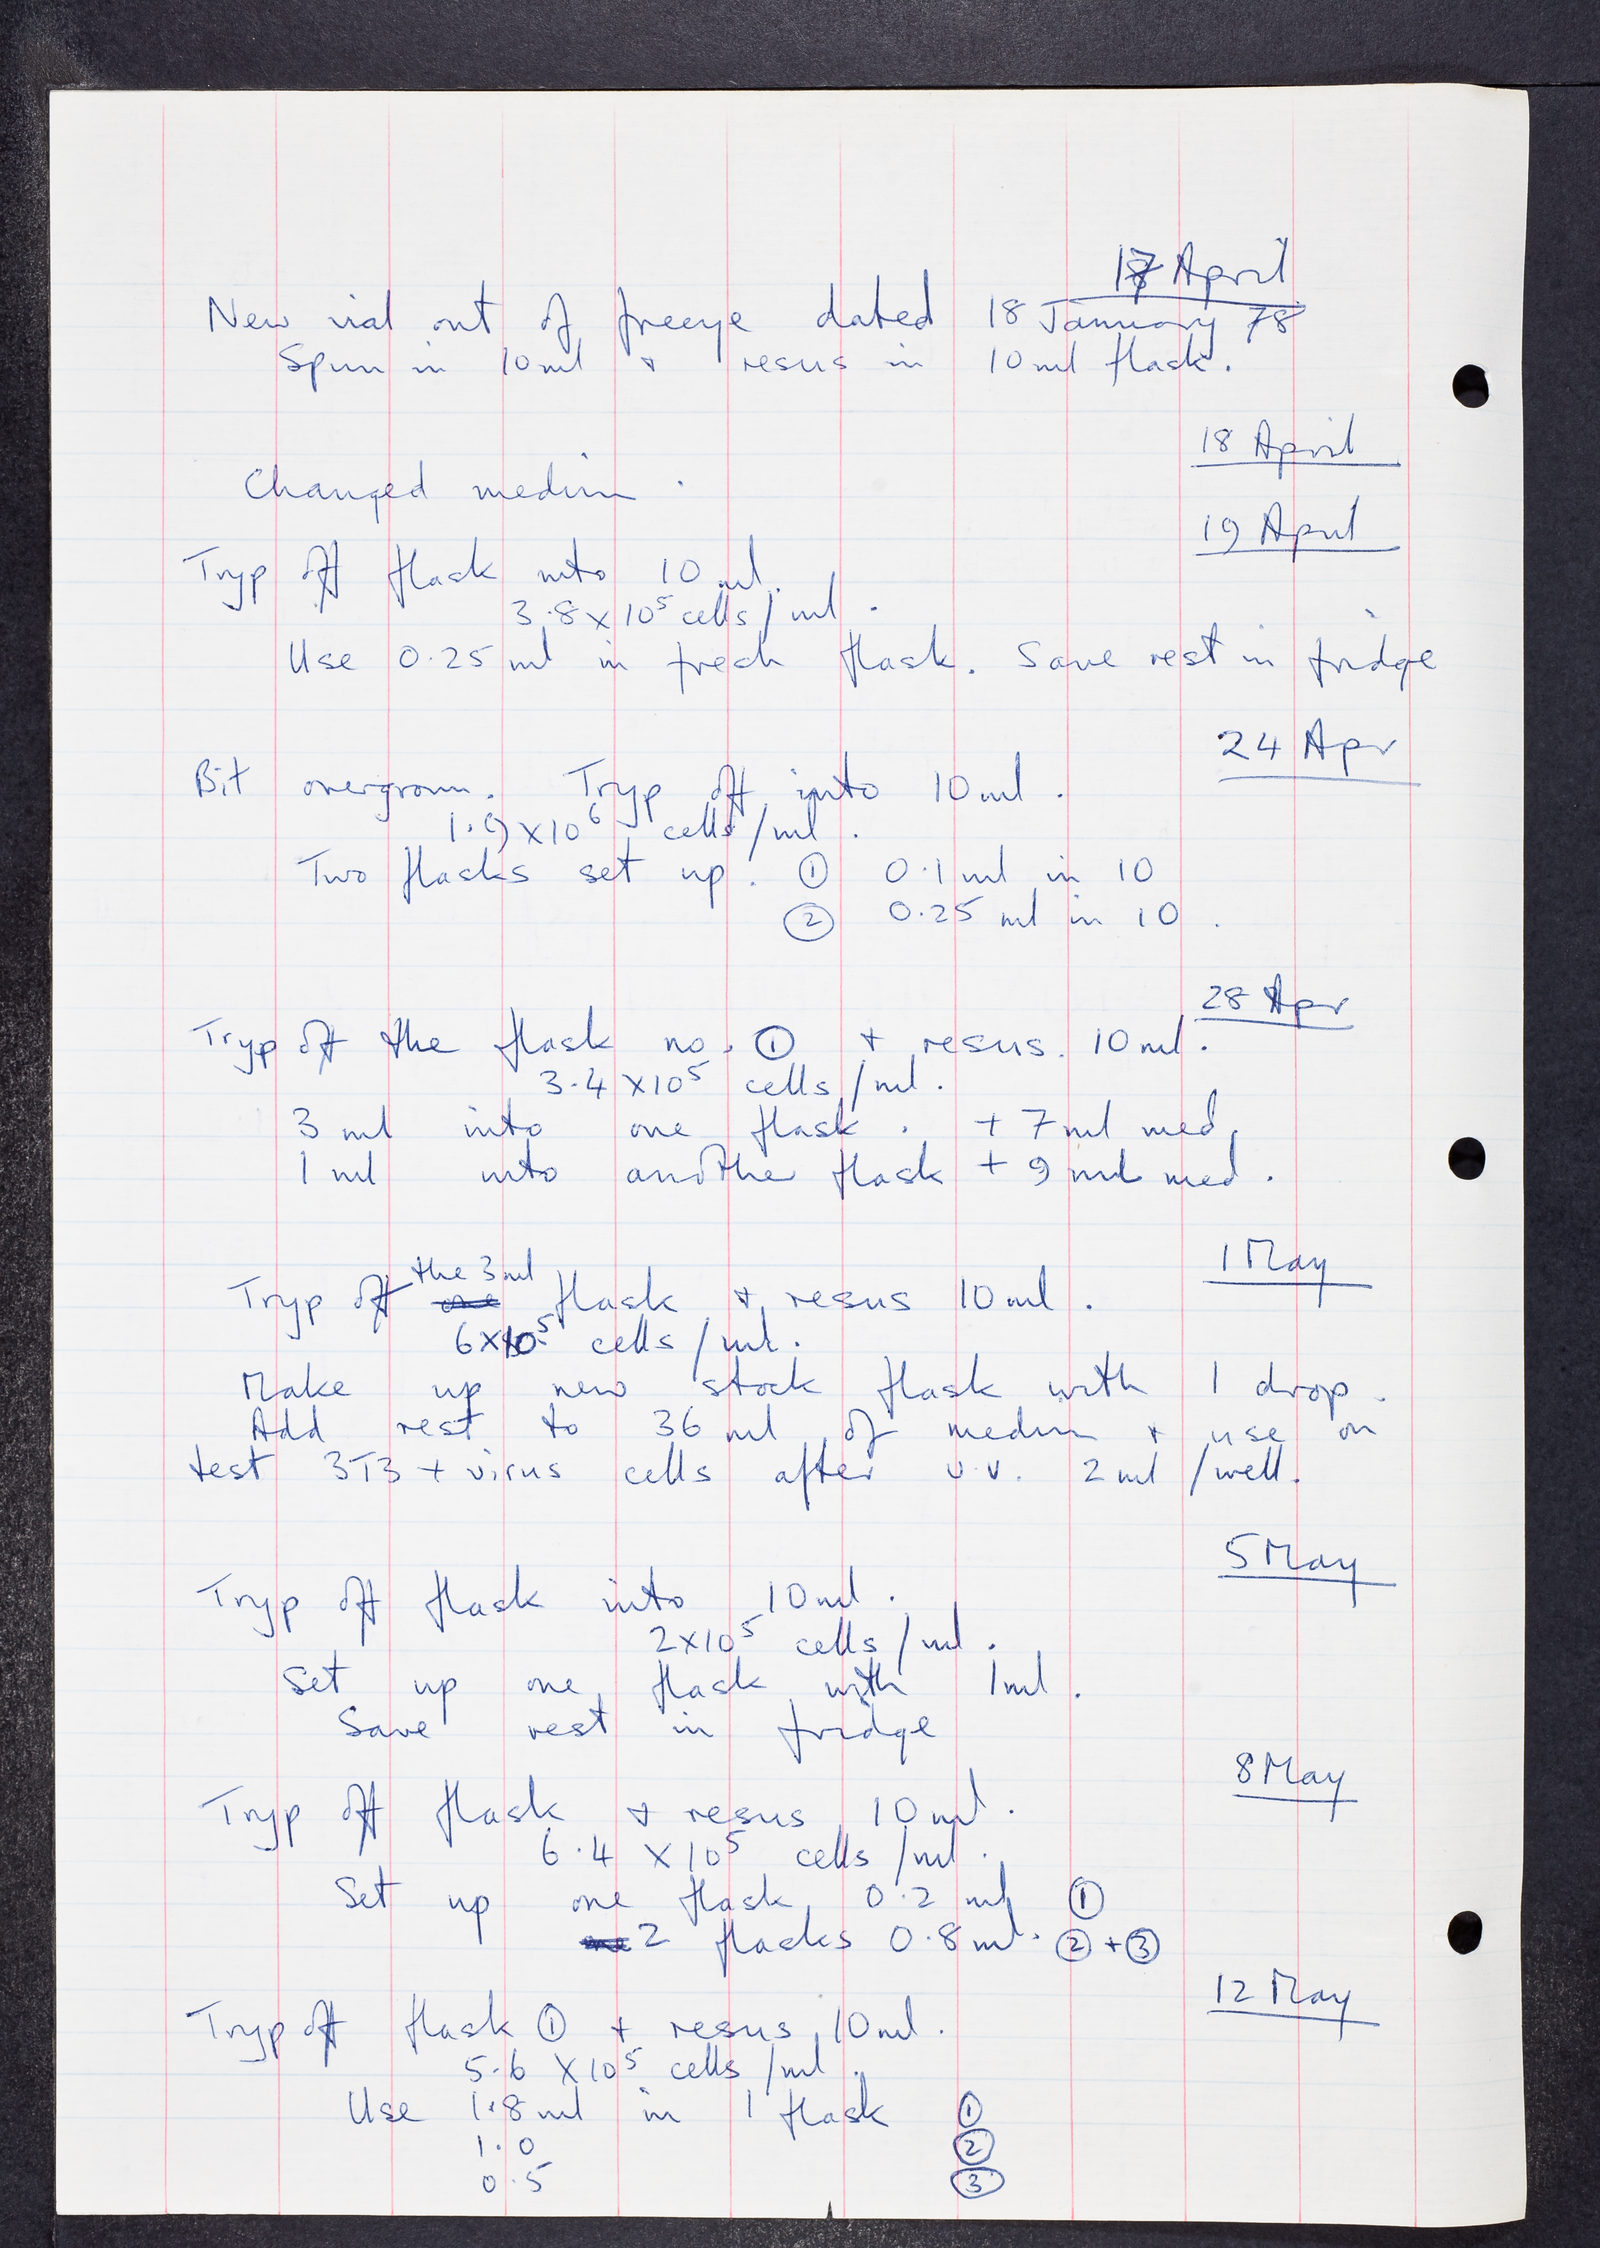 17 April
New vial out of freeze dated 18 January 78
Spun in 10ml + resus in 10ml flask.
18 April
Changed medium.
19 April
Tryp off flask into 10 ml.
3.8 x 10⁵ cells/ml.
Use 0.25 ml in fresh flask. Save rest in fridge
24 Apr
Bit overgrown. Tryp off into 10ml.
1.9 x 10⁶ cells/ml.
Two flasks set up. ① 0.1 ml in 10
② 0.25 ml in 10.
28 Apr
Tryp off the flask no. ① + resus. 10ml.
3.4 x 10⁵ cells/ml.
3 ml into one flask. + 7ml med.
1 ml into another flask + 9 ml med.
1 May
Tryp off the 3ml flask + resus 10ml.
6 x 10⁵ cells/ml.
Make up new stock flask with 1 drop.
Add rest to 36 ml of medium + use on
test 3T3 + virus cells after u.v. 2ml/well.
5 May
Tryp off flask into 10ml.
2 x 10⁵ cells/ml.
Set up one flask with 1ml.
Save rest in fridge
8 May
Tryp off flask + resus 10ml.
6.4 x 10⁵ cells/ml.
Set up one flask 0.2 ml ①
2 flasks 0.8ml. ② + ③
12 May
Tryp off flask ① + resus 10ml.
5.6 x 10⁵ cells/ml.
Use 1.8ml in 1 flask ①
1.0 ②
0.5 ③